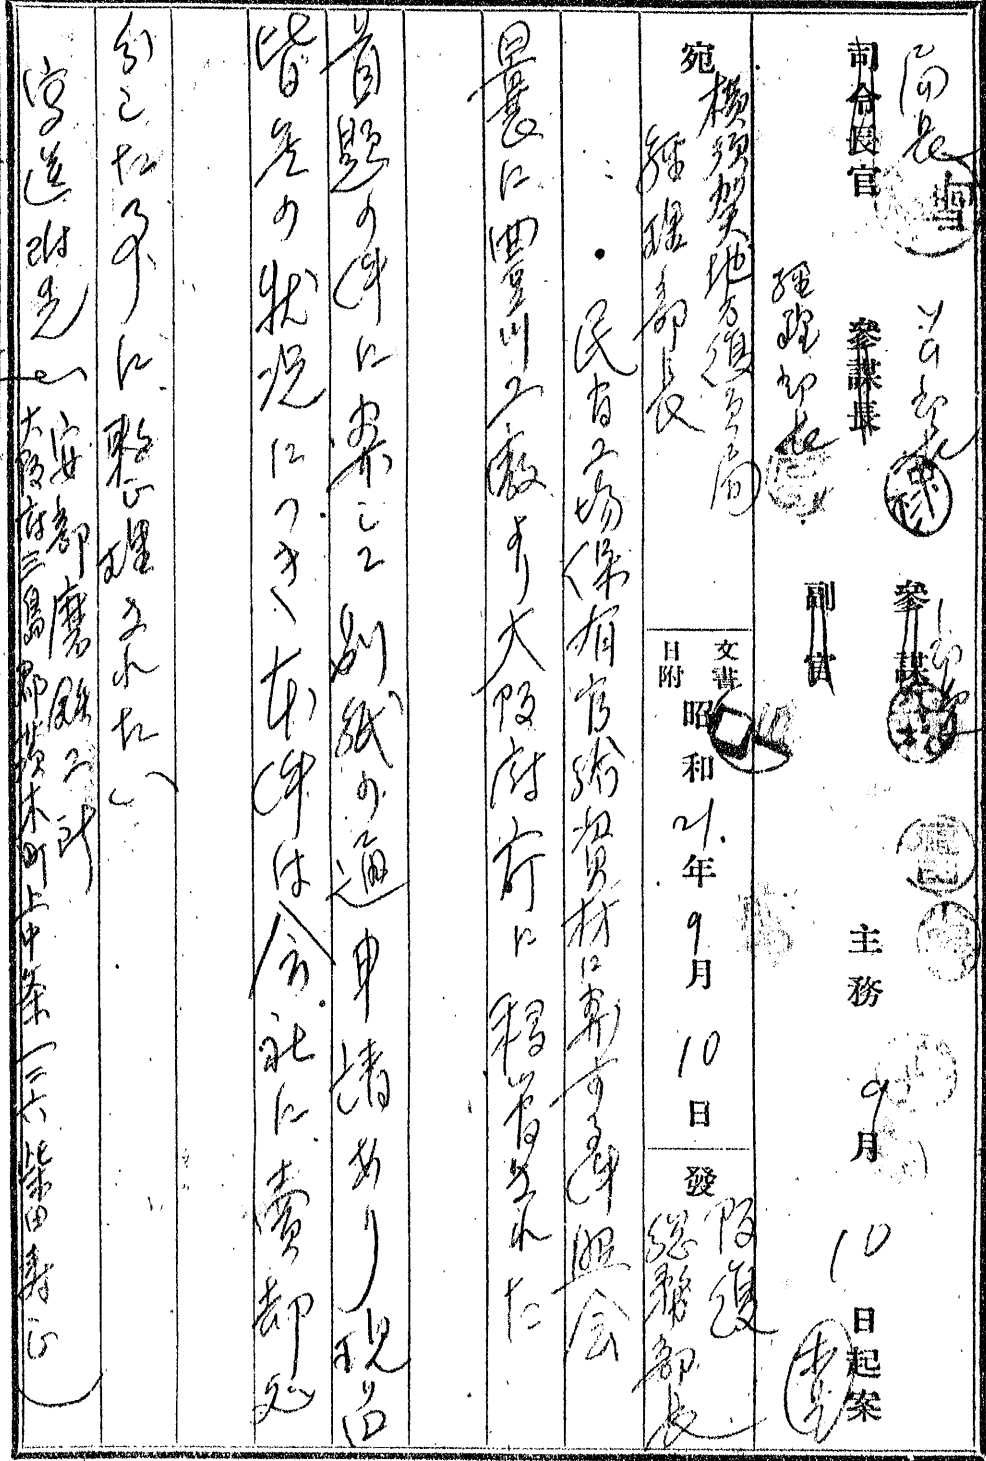 局長
司令長官
参謀長
経理部長
参謀
副官
主務
9月10日起案
宛
横須賀地方復員局
経理部長
文書
日附
昭和21年9月10日
發
阪復
総務部長
民有工場保有官給資材に関する件照会
曩に豊川工廠より大阪府庁に移管された
首題の件に関して別紙の通申請あり現品
皆無の状況につき本件は会社に賣却処
分した事に整理された(い)
写送附先(安部磨 工所
大阪府三島郡茨木町上中条一三六柴田寿